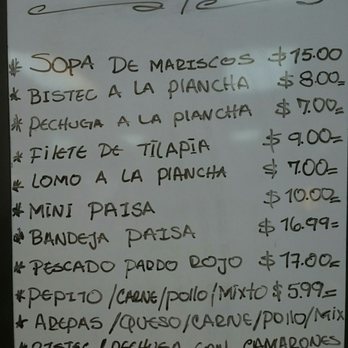 * SOPA DE MARISCOS $15.00
* BISTEC A LA PLANCHA $8.00=
* PECHUGA A LA PLANCHA $7.00=
* FILETE DE TILAPIA $9.00=
* LOMO A LA PLANCHA $7.00=
* MINI PAISA $10.00=
* BANDEJA PAISA $16.99=
* PESCADO PARDO ROJO $17.00=
* PEPITO/CARNE/POLLO/MIXTO $5.99=
* AREPAS/QUESO/CARNE/POLLO/MIX
* BISTEC/PECHUGA CON CAMARONES